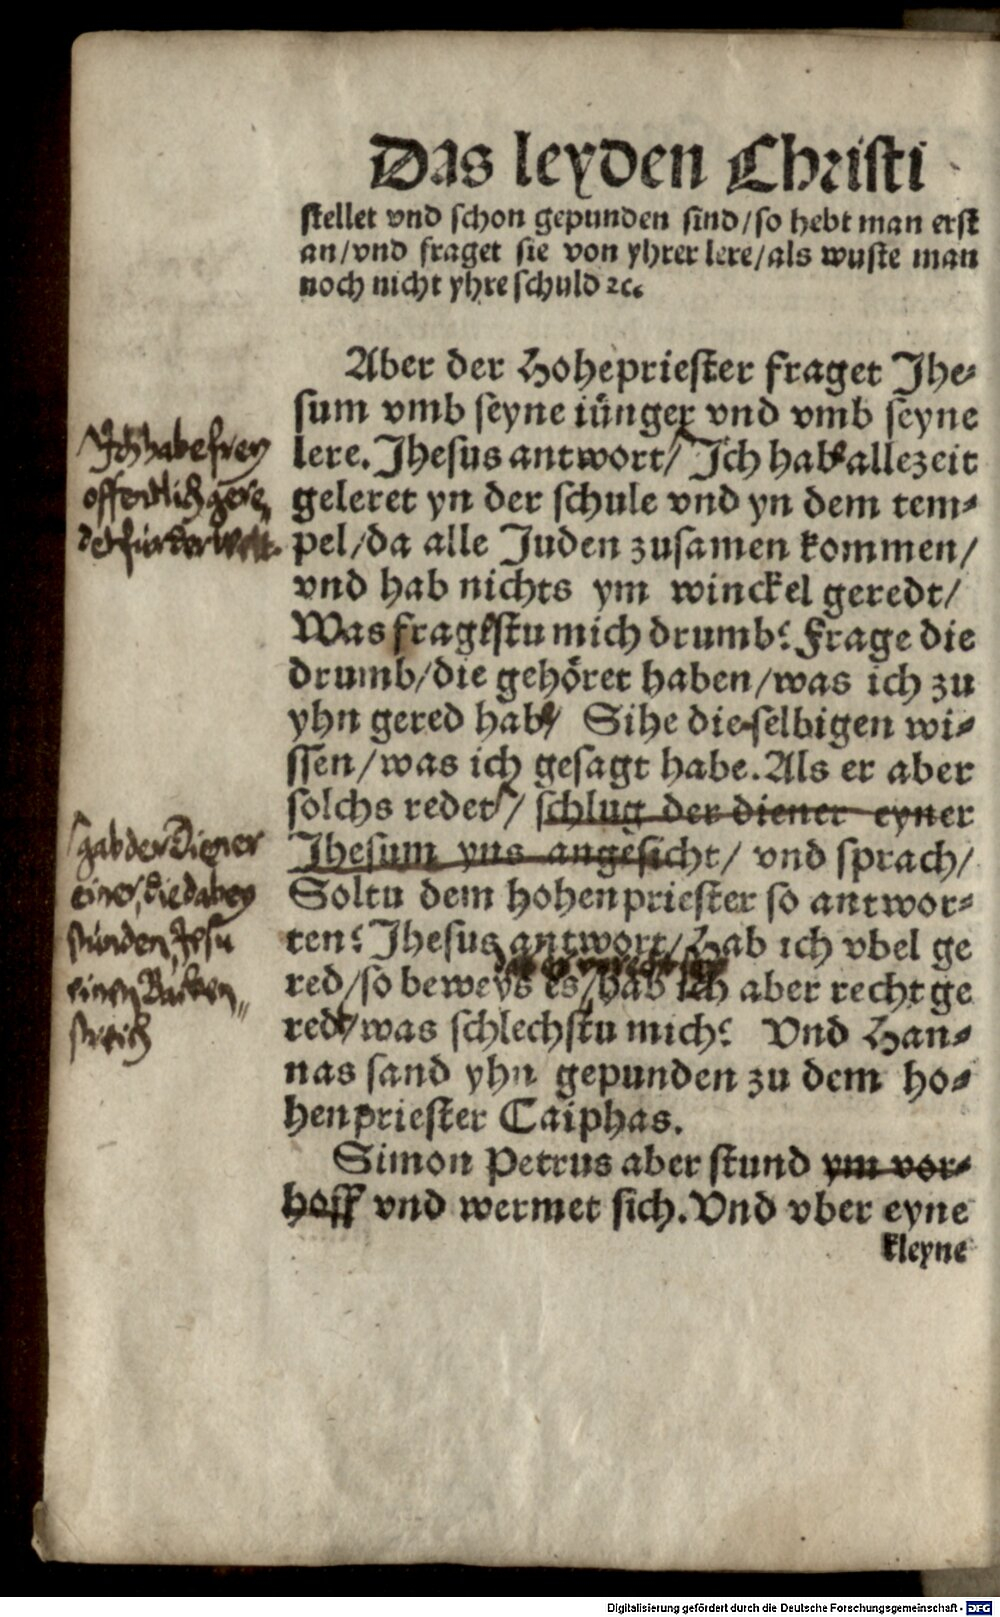 Das leyden Christi
stellet vnd schon gepunden sind/so hebt man erst
an/vnd fraget sie von yhrer lere/als wuste man
noch nicht yhre schuld ꝛc.
Aber der Hohepriester fraget Jhe⸗
sum vmb seyne iünger vnd vmb seyne
lere. Jhesus antwort/ Ich hab allezeit
geleret yn der schule vnd yn dem tem⸗
pel/da alle Juden zusamen kommen/
vnd hab nichts ym winckel geredt/
Was fragistu mich drumb? Frage die
drumb/die gehöret haben/was ich zu
yhn gered hab/ Sihe die selbigen wi⸗
ssen/was ich gesagt habe. Als er aber
solchs redet/ schlug der diener eyner
Jhesum yns angesicht/ vnd sprach/
Soltu dem hohenpriester so antwor⸗
ten? Jhesus antwort/ Hab ich vbel ge
red/so beweys es/hab ich aber recht ge
redt/was schlechstu mich? Vnd Han⸗
nas sand yhn gepunden zu dem ho⸗
henpriester Caiphas.
Simon Petrus aber stund ym vor⸗
hoff vnd wermet sich. Vnd vber eyne
kleyne
Ich habe frey
offentlich gere,
det für der Welt.
gab der Diener
einer, die dabey
stunden, Jesu
einen Backen„
streich
Digitalisierung gefördert durch die Deutsche Forschungsgemeinschaft - DFG